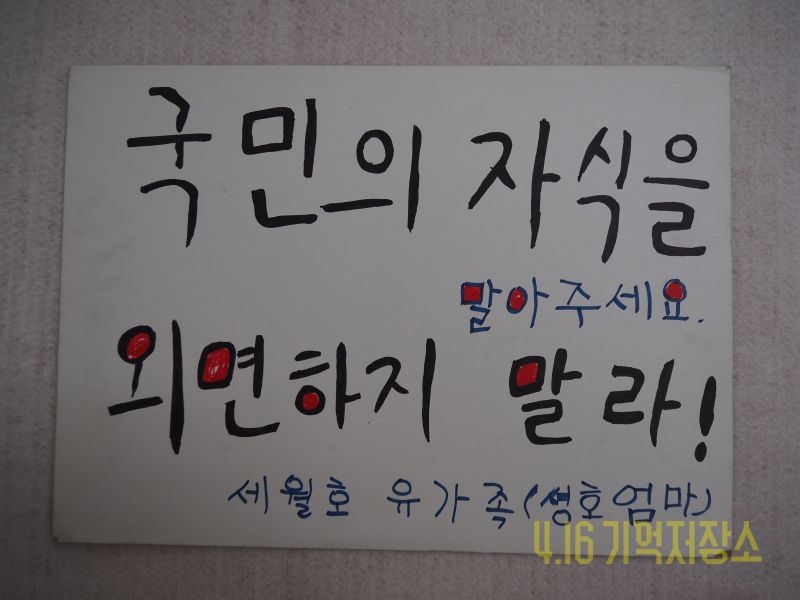 국민의 자식을
말아주세요.
외면하지 말라!
세월호 유가족(생호엄마)
4.16 기억저장소